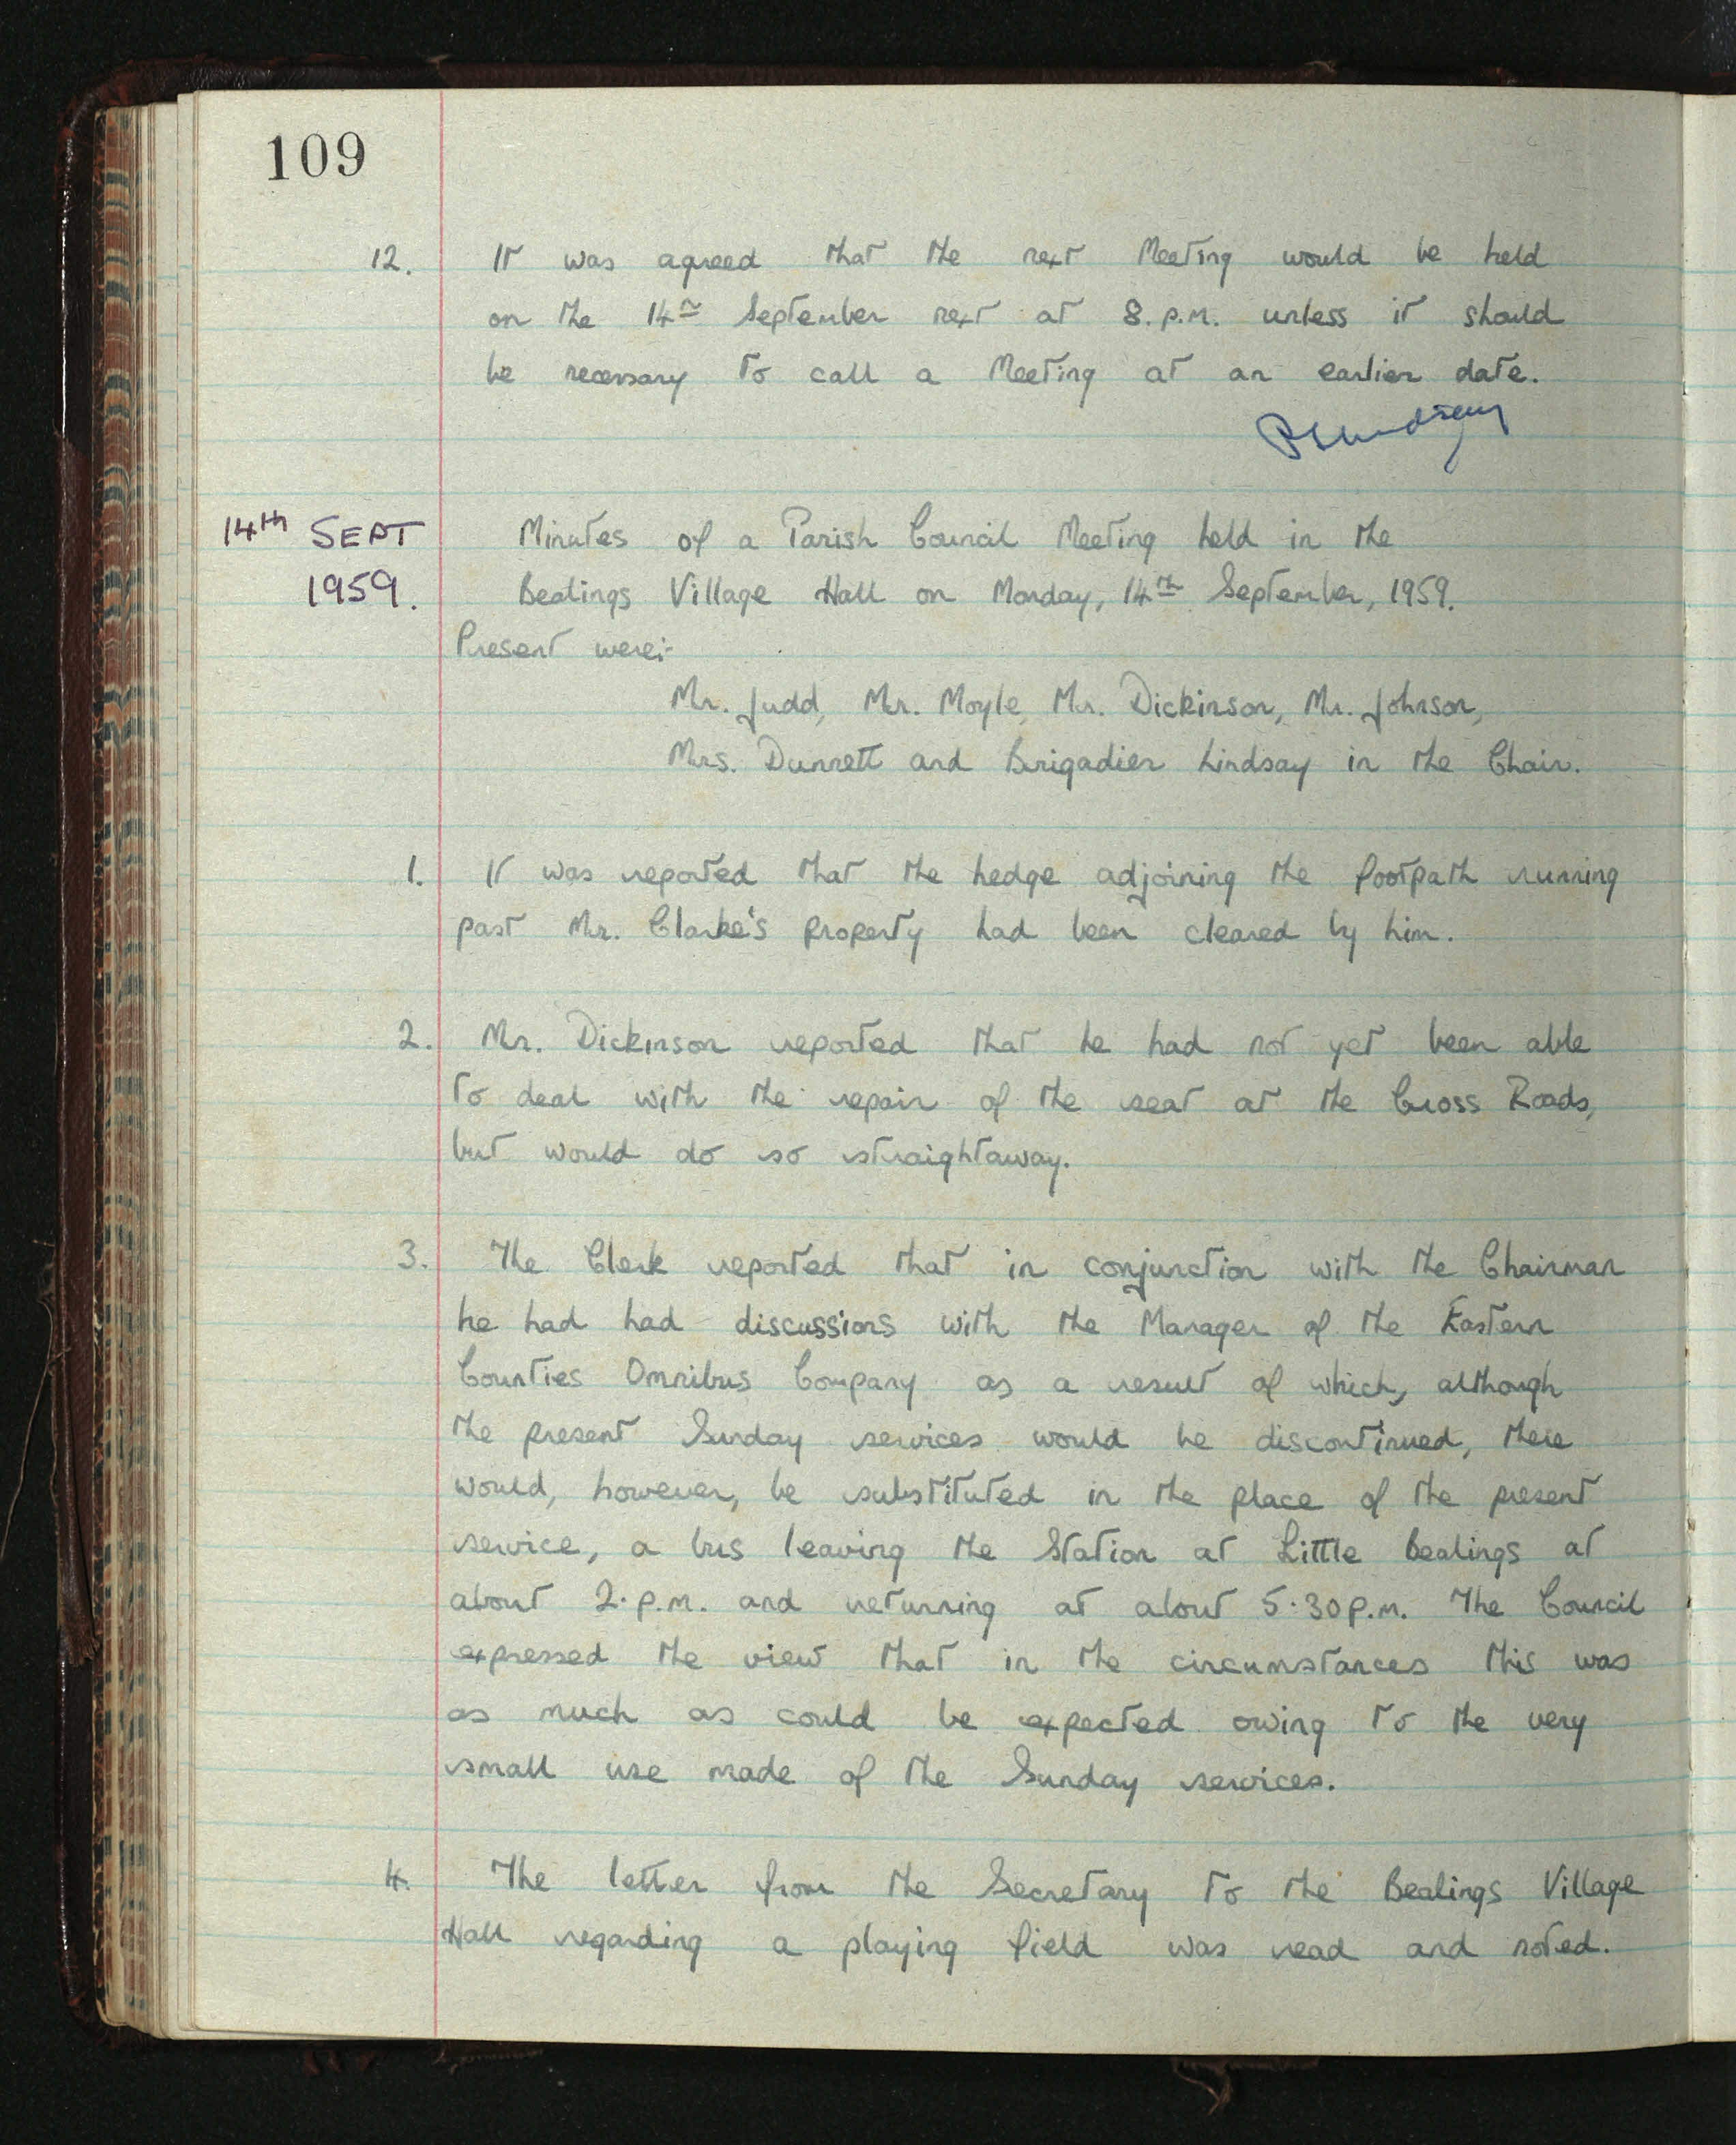 109
12. It was agreed that the next Meeting would be held
on the 14th September next at 8.p.m. unless it should
be necessary to call a Meeting at an earlier date.
14th SEPT
1959.
Minutes of a Parish Council Meeting held in the
Bealings Village Hall on Monday, 14th September, 1959.
Present were:-
Mr. Judd, Mr. Moyle, Mr. Dickinson, Mr. Johnson,
Mrs. Dunnett and Brigadier Lindsay in the Chair.
1. It was reported that the hedge adjoining the footpath running
past Mr. Clarke's property had been cleared by him.
2. Mr. Dickinson reported that he had not yet been able
to deal with the repair of the seat at the Cross Roads,
but would do so straightaway.
3. The Clerk reported that in conjunction with the Chairman
he had had discussions with the Manager of the Eastern
Counties Omnibus Company as a result of which, although
the present Sunday services would be discontinued, there
would, however, be substituted in the place of the present
service, a bus leaving the Station at Little Bealings at
about 2.p.m. and returning at about 5.30p.m. The Council
expressed the view that in the circumstances this was
as much as could be expected owing to the very
small use made of the Sunday services.
4. The letter from the Secretary to the Bealings Village
Hall regarding a playing field was read and noted.